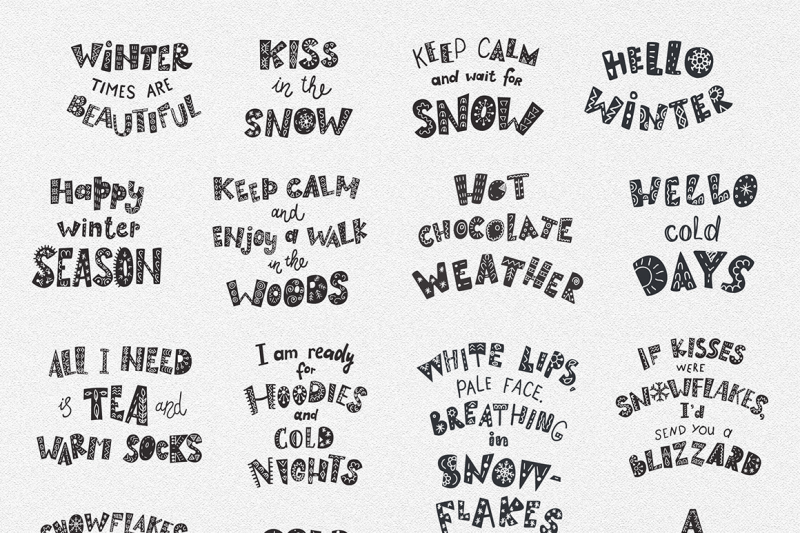 WiNTER
TIMES ARE
BEAUTIFUL
KISS
in the
SNOW
KEEP CALM
and wait for
SNOW
HELLO
WiNTER
Happy
winter
SEASON
KEEP CALM
and
ENjoy a WALK
in the
WOODS
HOT
CHOCOLATE
WEATHER
HELLO
cold
DAYS
ALL I NEED
is TEA and
WARM SOCKS
I am ready
for
HOODIES
and
COLD
NIGHTS
WHITE LIPS,
PALE FACE.
BREATHING
in
SNOW-
FLAKES
IF KISSES
WERE
SNOWFLAKES,
I'd
SEND YOU a
BLIZZARD
SNOWFLAKES
A